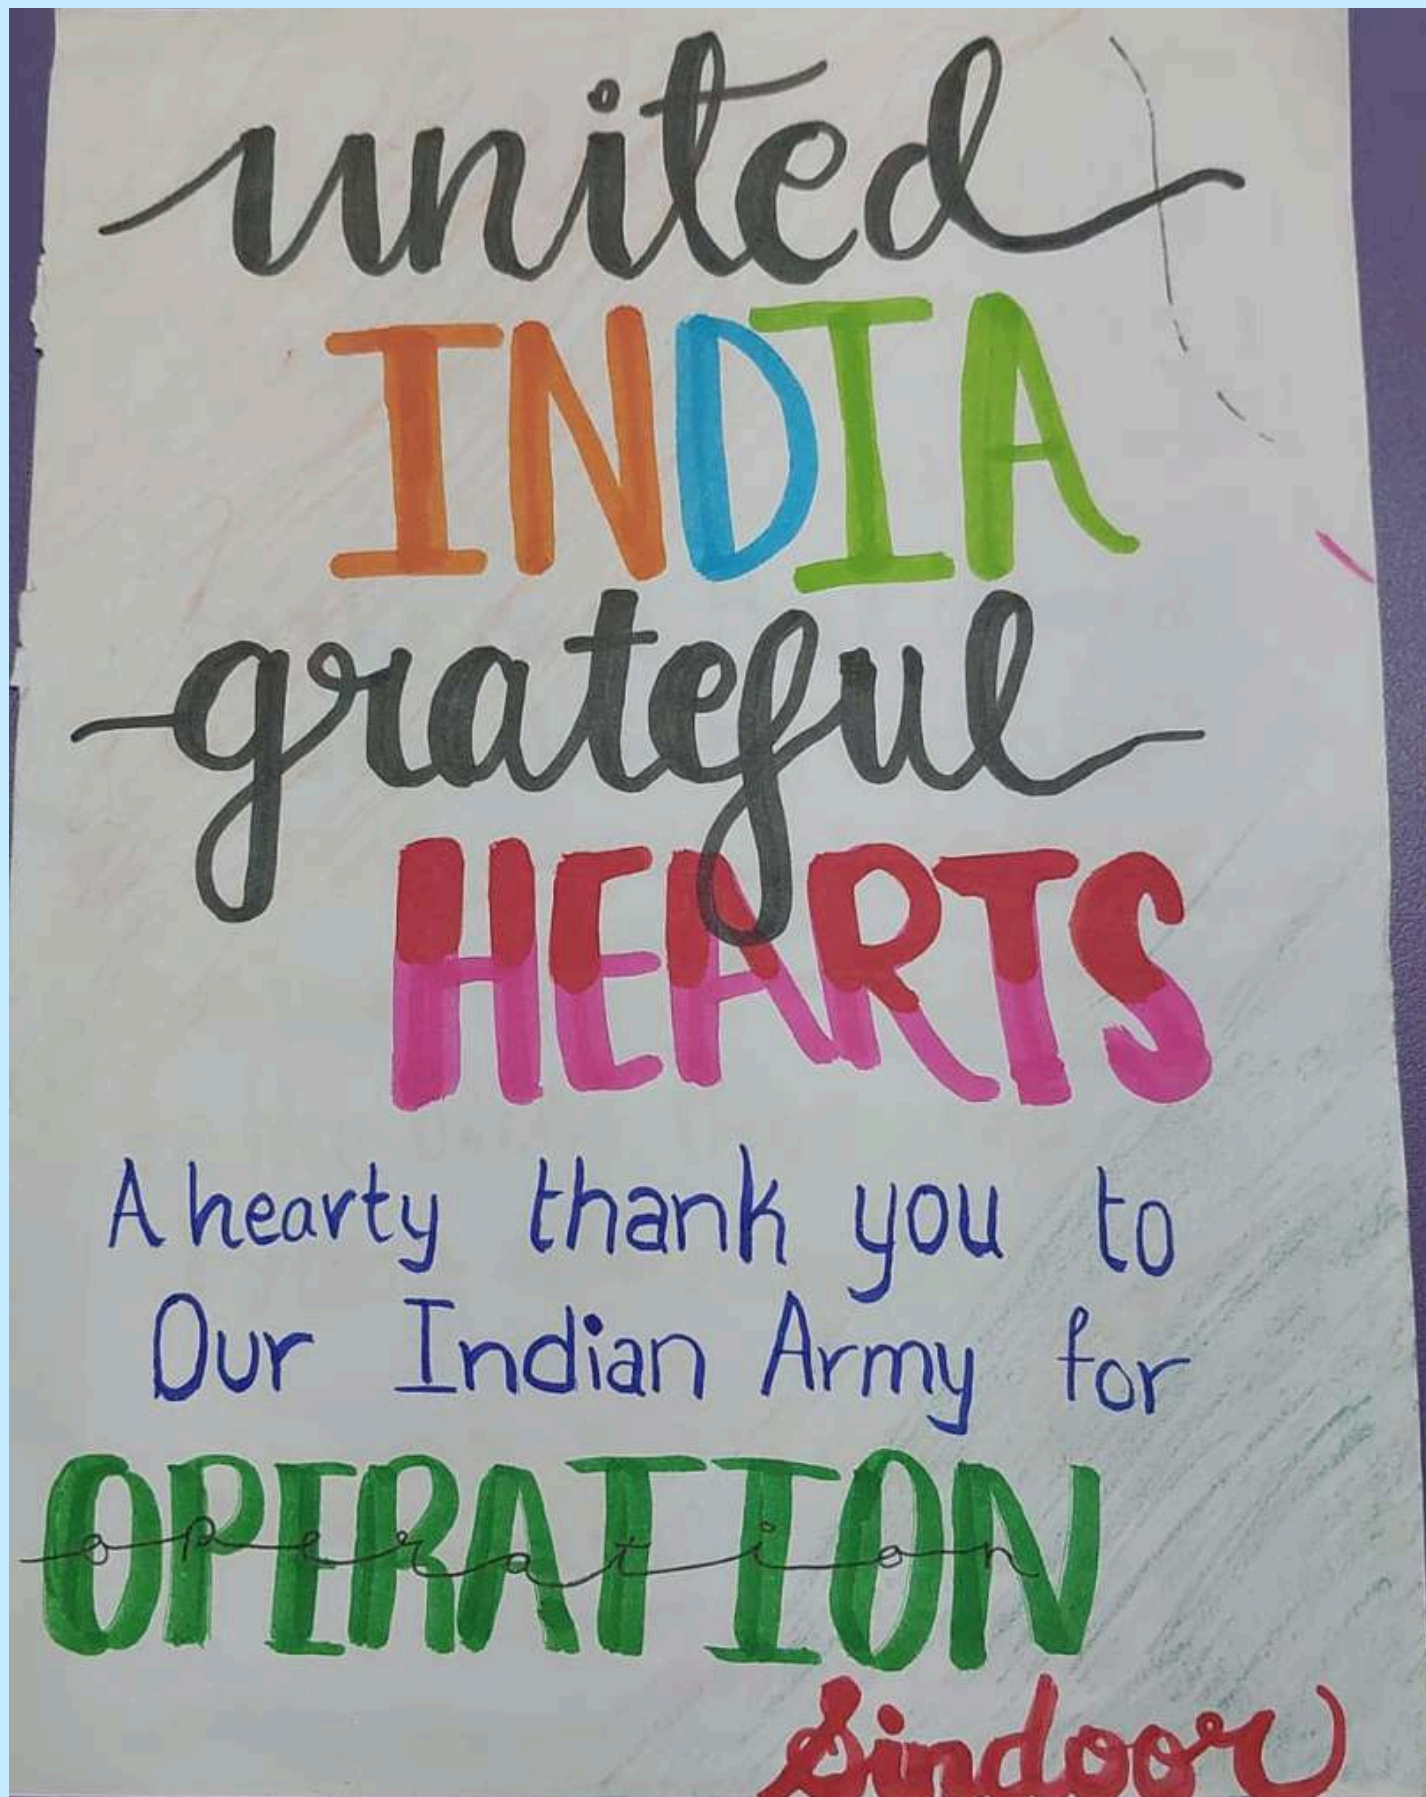 united
INDIA
grateful
HEARTS
A hearty thank you to
Our Indian Army for
OPERATION
operation
Sindoor